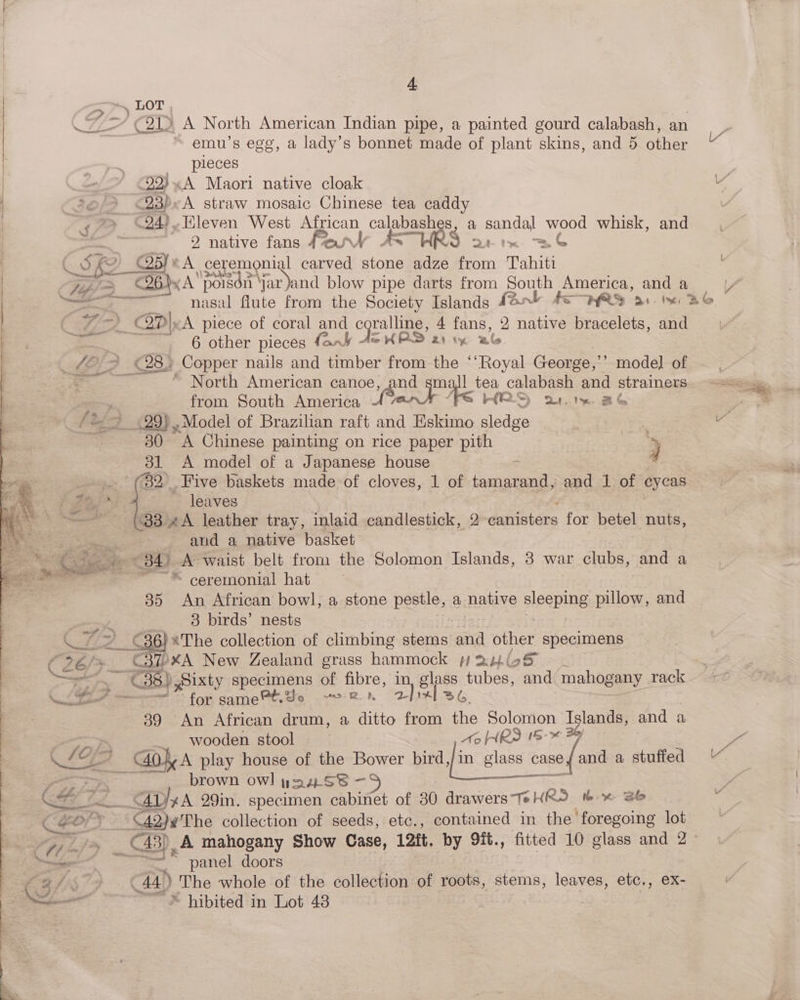 4
LOT
21 A North American Indian pipe, a painted gourd calabash, an
emu's egg, a lady's bonnet made of plant skins, and 5 other
pieces
22 A Maori native cloak
23 A straw mosaic Chinese tea caddy
24 Eleven West African calabashes, a sandal wood whisk, and
2 native fans Part to HRS 21 ix 26
25 A ceremonial carved stone adze from Tahiti
26 A "poison" jar and blow pipe darts from South America, and a
nasal flute from the Society Islands Part to HRS 21. ix. 26
27 A piece of coral and coralline, 4 fans, 2 native bracelets, and
6 other pieces Part to HRS 21 ix 26
28 Copper nails and timber from the "Royal George," model of
North American canoe, and small tea calabash and strainers
from South America Part to HRS 21. ix. 26
29 Model of Brazilian raft and Eskimo sledge
30 A Chinese painting on rice paper pith
31 A model of a Japanese house
32 Five baskets made of cloves, 1 of tamarand, and 1 of cycas
leaves
33 A leather tray, inlaid candlestick, 2 canisters for betel nuts,
and a native basket
34 A waist belt from the Solomon Islands, 3 war clubs, and a
ceremonial hat
35 An African bowl, a stone pestle, a native sleeping pillow, and
3 birds' nests
36 The collection of climbing stems and other specimens
37 A New Zealand grass hammock
38 Sixty specimens of fibre, in glass tubes, and mahogany rack
for same
39 An African drum, a ditto from the Solomon Islands, and a
wooden stool to HRS
40 A play house of the Bower bird, in glass case and a stuffed
brown owl
41 A 29in. specimen cabinet of 30 drawers To HRS
42 The collection of seeds, etc., contained in the foregoing lot
43 A mahogany Show Case, 12ft. by 9ft., fitted 10 glass and 2
panel doors
44 The whole of the collection of roots, stems, leaves, etc., ex-
hibited in Lot 43